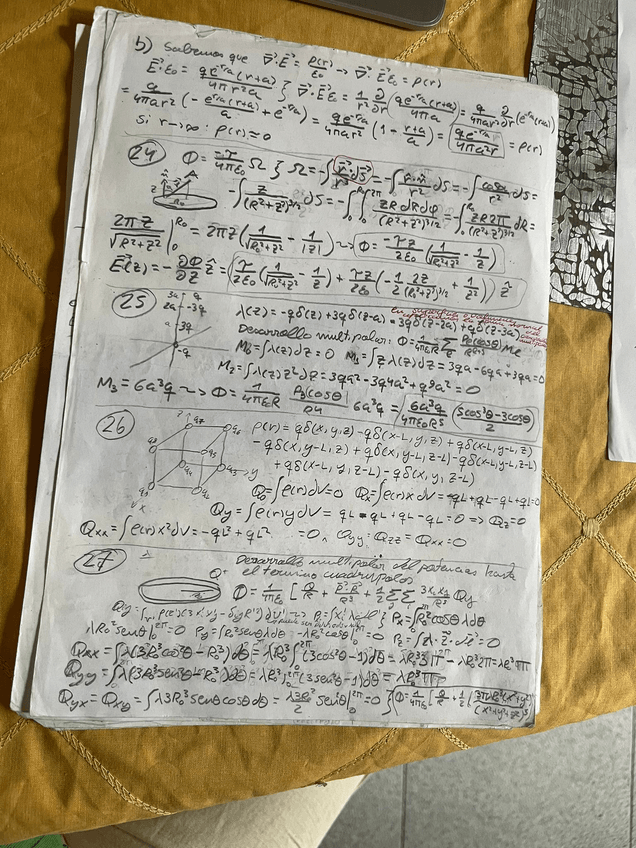 b) Sabemos que ∇⃗·E⃗ = ρ(r)/ε₀ → ∇⃗·E⃗ε₀ = ρ(r)
E⃗·ε₀ = qe^(-r/a)(r+a)/(4πr²a) } ∇⃗·E⃗ε₀ = 1/r² ∂/∂r (qe^(-r/a)(r+a)/4πa) = q/(4πar²) ∂/∂r (e^(-r/a)(r+a))
= q/(4πar²) (-e^(-r/a)(r+a)/a + e^(-r/a)) = qe^(-r/a)/(4πar²) (1 - (r+a)/a) = qe^(-r/a)/(4πa²r) = ρ(r)
si r→∞: ρ(r) ≈ 0
24 Φ = -τ/(4πε₀) Ω } Ω = -∫ r⃗·dS⃗/r³ = -∫ r̂·n̂/r² dS = -∫ cosα/r² dS =
-∫ z/(R²+z²)^(3/2) dS = -∫₀^R₀ ∫₀^2π zR dR dφ/(R²+z²)^(3/2) = -∫₀^R₀ zR2π/(R²+z²)^(3/2) dR =
2πz/√(R²+z²) |₀^R₀ = 2πz (1/√(R₀²+z²) - 1/|z|) ⇝ Φ = -τz/2ε₀ (1/√(R₀²+z²) - 1/z)
E⃗(z) = -∂Φ/∂z ẑ = (τ/2ε₀ (1/√(R₀²+z²) - 1/z) + τz/2ε₀ (-1/2 2z/(R₀²+z²)^(3/2) + 1/z²)) ẑ
25 λ(z) = -qδ(z) + 3qδ(z-a) - 3qδ(z-2a) + qδ(z-3a)
3a q
2a -3q
a 3q
-q
Desarrollo multipolar: Φ = 1/(4πε₀R) Σ Pℓ(cosθ)/R^ℓ Mℓ
M₀ = ∫λ(z)dz = 0 M₁ = ∫zλ(z)dz = 3qa - 6qa + 3qa = 0
M₂ = ∫λ(z)z²dz = 3qa² - 3q4a² + q9a² = 0
M₃ = 6a³q ⇝ Φ = 1/(4πε₀R) P₃(cosθ)/R⁴ 6a³q = 6a³q/(4πε₀R⁵) (5cos³θ - 3cosθ)/2
26 ρ(r) = qδ(x,y,z) - qδ(x-L,y,z) + qδ(x-L,y-L,z)
- qδ(x,y-L,z) + qδ(x,y-L,z-L) - qδ(x-L,y-L,z-L)
+ qδ(x-L,y,z-L) - qδ(x,y,z-L)
Q₀ = ∫ρ(r)dV = 0 Qx = ∫ρ(r)x dV = -qL + qL - qL + qL = 0
Qy = ∫ρ(r)y dV = qL - qL + qL - qL = 0 ⇒ Qz = 0
Qxx = ∫ρ(r)x²dV = -qL² + qL² = 0, Qyy = Qzz = Qxx = 0
27 Desarrollo multipolar del potencias hasta
el termino cuadrupolos
Φ = 1/(4πε₀) [Q/R + P⃗·R⃗/R³ + 1/2 ΣΣ 3xᵢxⱼ/R⁵ Qij
Qij = ∫ρ(r')(3x'ᵢx'ⱼ - δij R'²)dV' Px = ∫R₀² cosθ λ dθ
λR₀² senθ|₀^2π = 0 Py = ∫R₀² senθ λ dθ = -λR₀² cosθ|₀^2π = 0
Qxx = ∫λ(3R₀³cos²θ - R₀³)dθ = λR₀³∫₀^2π(3cos²θ - 1)dθ = λR₀³3π - λR₀³2π = λR₀³π
Qyy = ∫λ(3R₀³sen²θ - R₀³)dθ = λR₀³∫₀^2π(3sen²θ - 1)dθ = λR₀³π
Qyx = Qxy = ∫λ3R₀³senθcosθdθ = λ3R₀³/2 sen²θ|₀^2π = 0